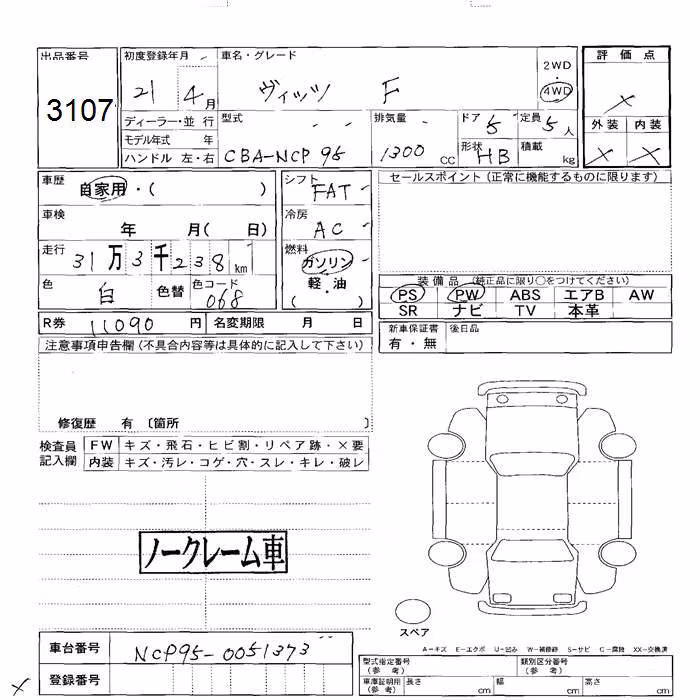 出品番号
3107
初度登録年月 21 4月
車名・グレード ヴィッツ F
2WD
4WD
評価点
×
ディーラー・並行
モデル年式 年
ハンドル 左・右
型式 CBA-NCP 95
排気量 1300 CC
ドア 5
定員 5人
形状 HB
積載 kg
外装 内装
× ×
車歴 自家用・( )
車検 年 月( 日)
走行 31万3千238km
色 白 色替 色コード 068
シフト FAT
冷房 AC
燃料 ガソリン
軽・油
( )
セールスポイント (正常に機能するものに限ります)
装備品 (純正品に限り○をつけてください)
PS PW ABS エアB AW
SR ナビ TV 本革
R券 11090 円 名変期限 月 日
新車保証書 後日品
有・無
注意事項申告欄(不具合内容等は具体的に記入して下さい)
修復歴 有 〔箇所 〕
検査員
記入欄
FW キズ・飛石・ヒビ割・リペア跡・×要
内装 キズ・汚レ・コゲ・穴・スレ・キレ・破レ
ノークレーム車
スペア
A−キズ E−エクボ U−凹み W−補修跡 S−サビ C−腐蝕 XX−交換済
車台番号 NCP95-0051373
登録番号
×
型式指定番号
(参考)
類別区分番号
(参考)
車庫証明用
(参考)
長さ cm 幅 cm 高さ cm